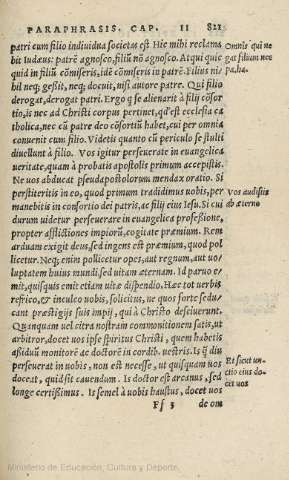 PARAPHRASIS. CAP. II 821
patri cum filio indiuidua societas est. Hic mihi reclama
bit Iudæus: patrē agnosco, filiū nō agnosco. Atqui quic
quid in filiū cōmiseris, idē cōmiseris in patrē. Filius ni-
hil neq; gessit, neq; docuit, nisi autore patre. Qui filio
derogat, derogat patri. Ergo q se alienarit à filij cōsor
tio, is nec ad Christi corpus pertinet, qd' est ecclesia ca
tholica, nec cū patre deo cōsortiū habet, cui per omnia
conuenit cum filio. Videtis quanto cū periculo se stulti
diuellunt à filio. Vos igitur perseuerate in euangelica
ueritate, quam à probatis apostolis primum accepistis.
Ne uos abducat pseudapostolorum mendax oratio. Si
perstiteritis in eo, quod primum tradidimus uobis, per
manebitis in consortio dei patris, ac filij eius Iesu. Si cui
durum uidetur perseuerare in euangelica professione,
propter afflictiones impiorū, cogitate præmium. Rem
arduam exigit deus, sed ingens est præmium, quod pol
licetur. Neq; enim pollicetur opes, aut regnum, aut uo-
luptatem huius mundi, sed uitam æternam. Id paruo e-
mit, quisquis emit etiam uitæ dispendio. Hæc tot uerbis
refrico, & inculco uobis, solicitus, ne quos forte sedu-
cant præstigijs suis impij, qui à Christo desciuerunt.
Quanquam uel citra nostram commonitionem satis, ut
arbitror, docet uos ipse spiritus Christi, quem habetis
assiduū monitorē ac doctorē in cordib. uestris. Is q̄ diu
perseuerat in uobis, non est necesse, ut quisquam uos
doceat, quid sit cauendum. Is doctor est arcanus, sed
longe certissimus. Is semel à uobis haustus, docet uos
Ff 3 de om
Omnis qui ne
gat filium nec
pa.ha.
Vos audistis
ab æterno
Et sicut un-
ctio eius do-
cet uos
Ministerio de Educación, Cultura y Deporte,